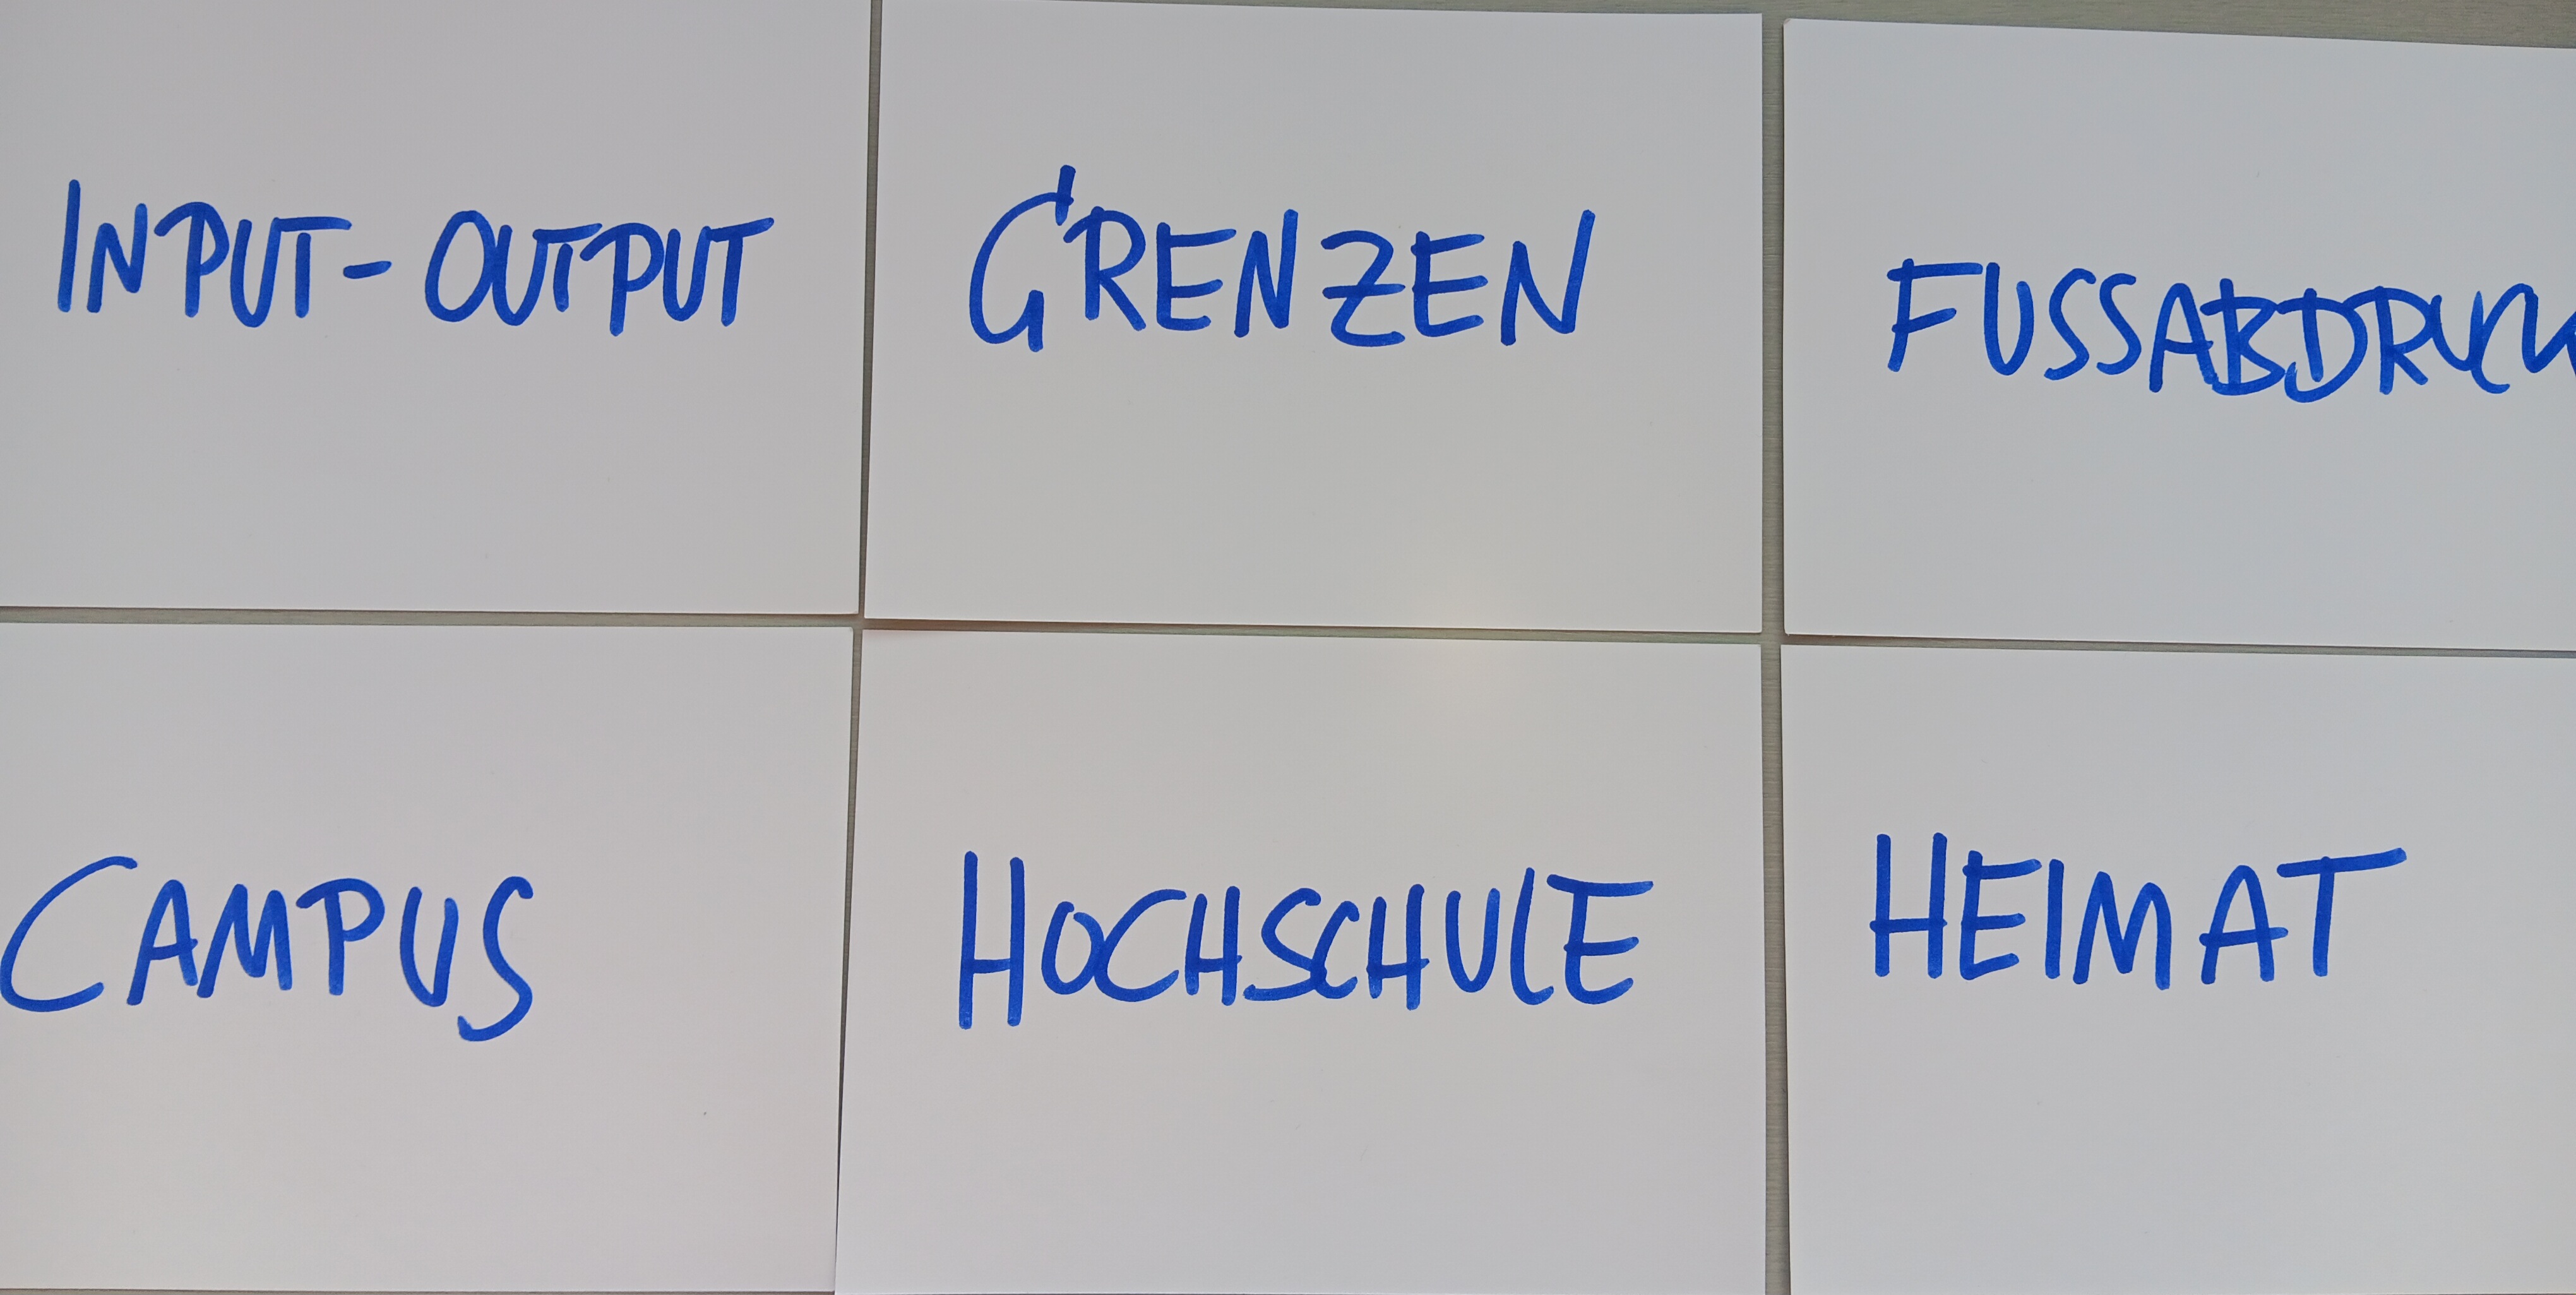 INPUT-OUTPUT
GRENZEN
FUSSABDRUCK
CAMPUS
HOCHSCHULE
HEIMAT